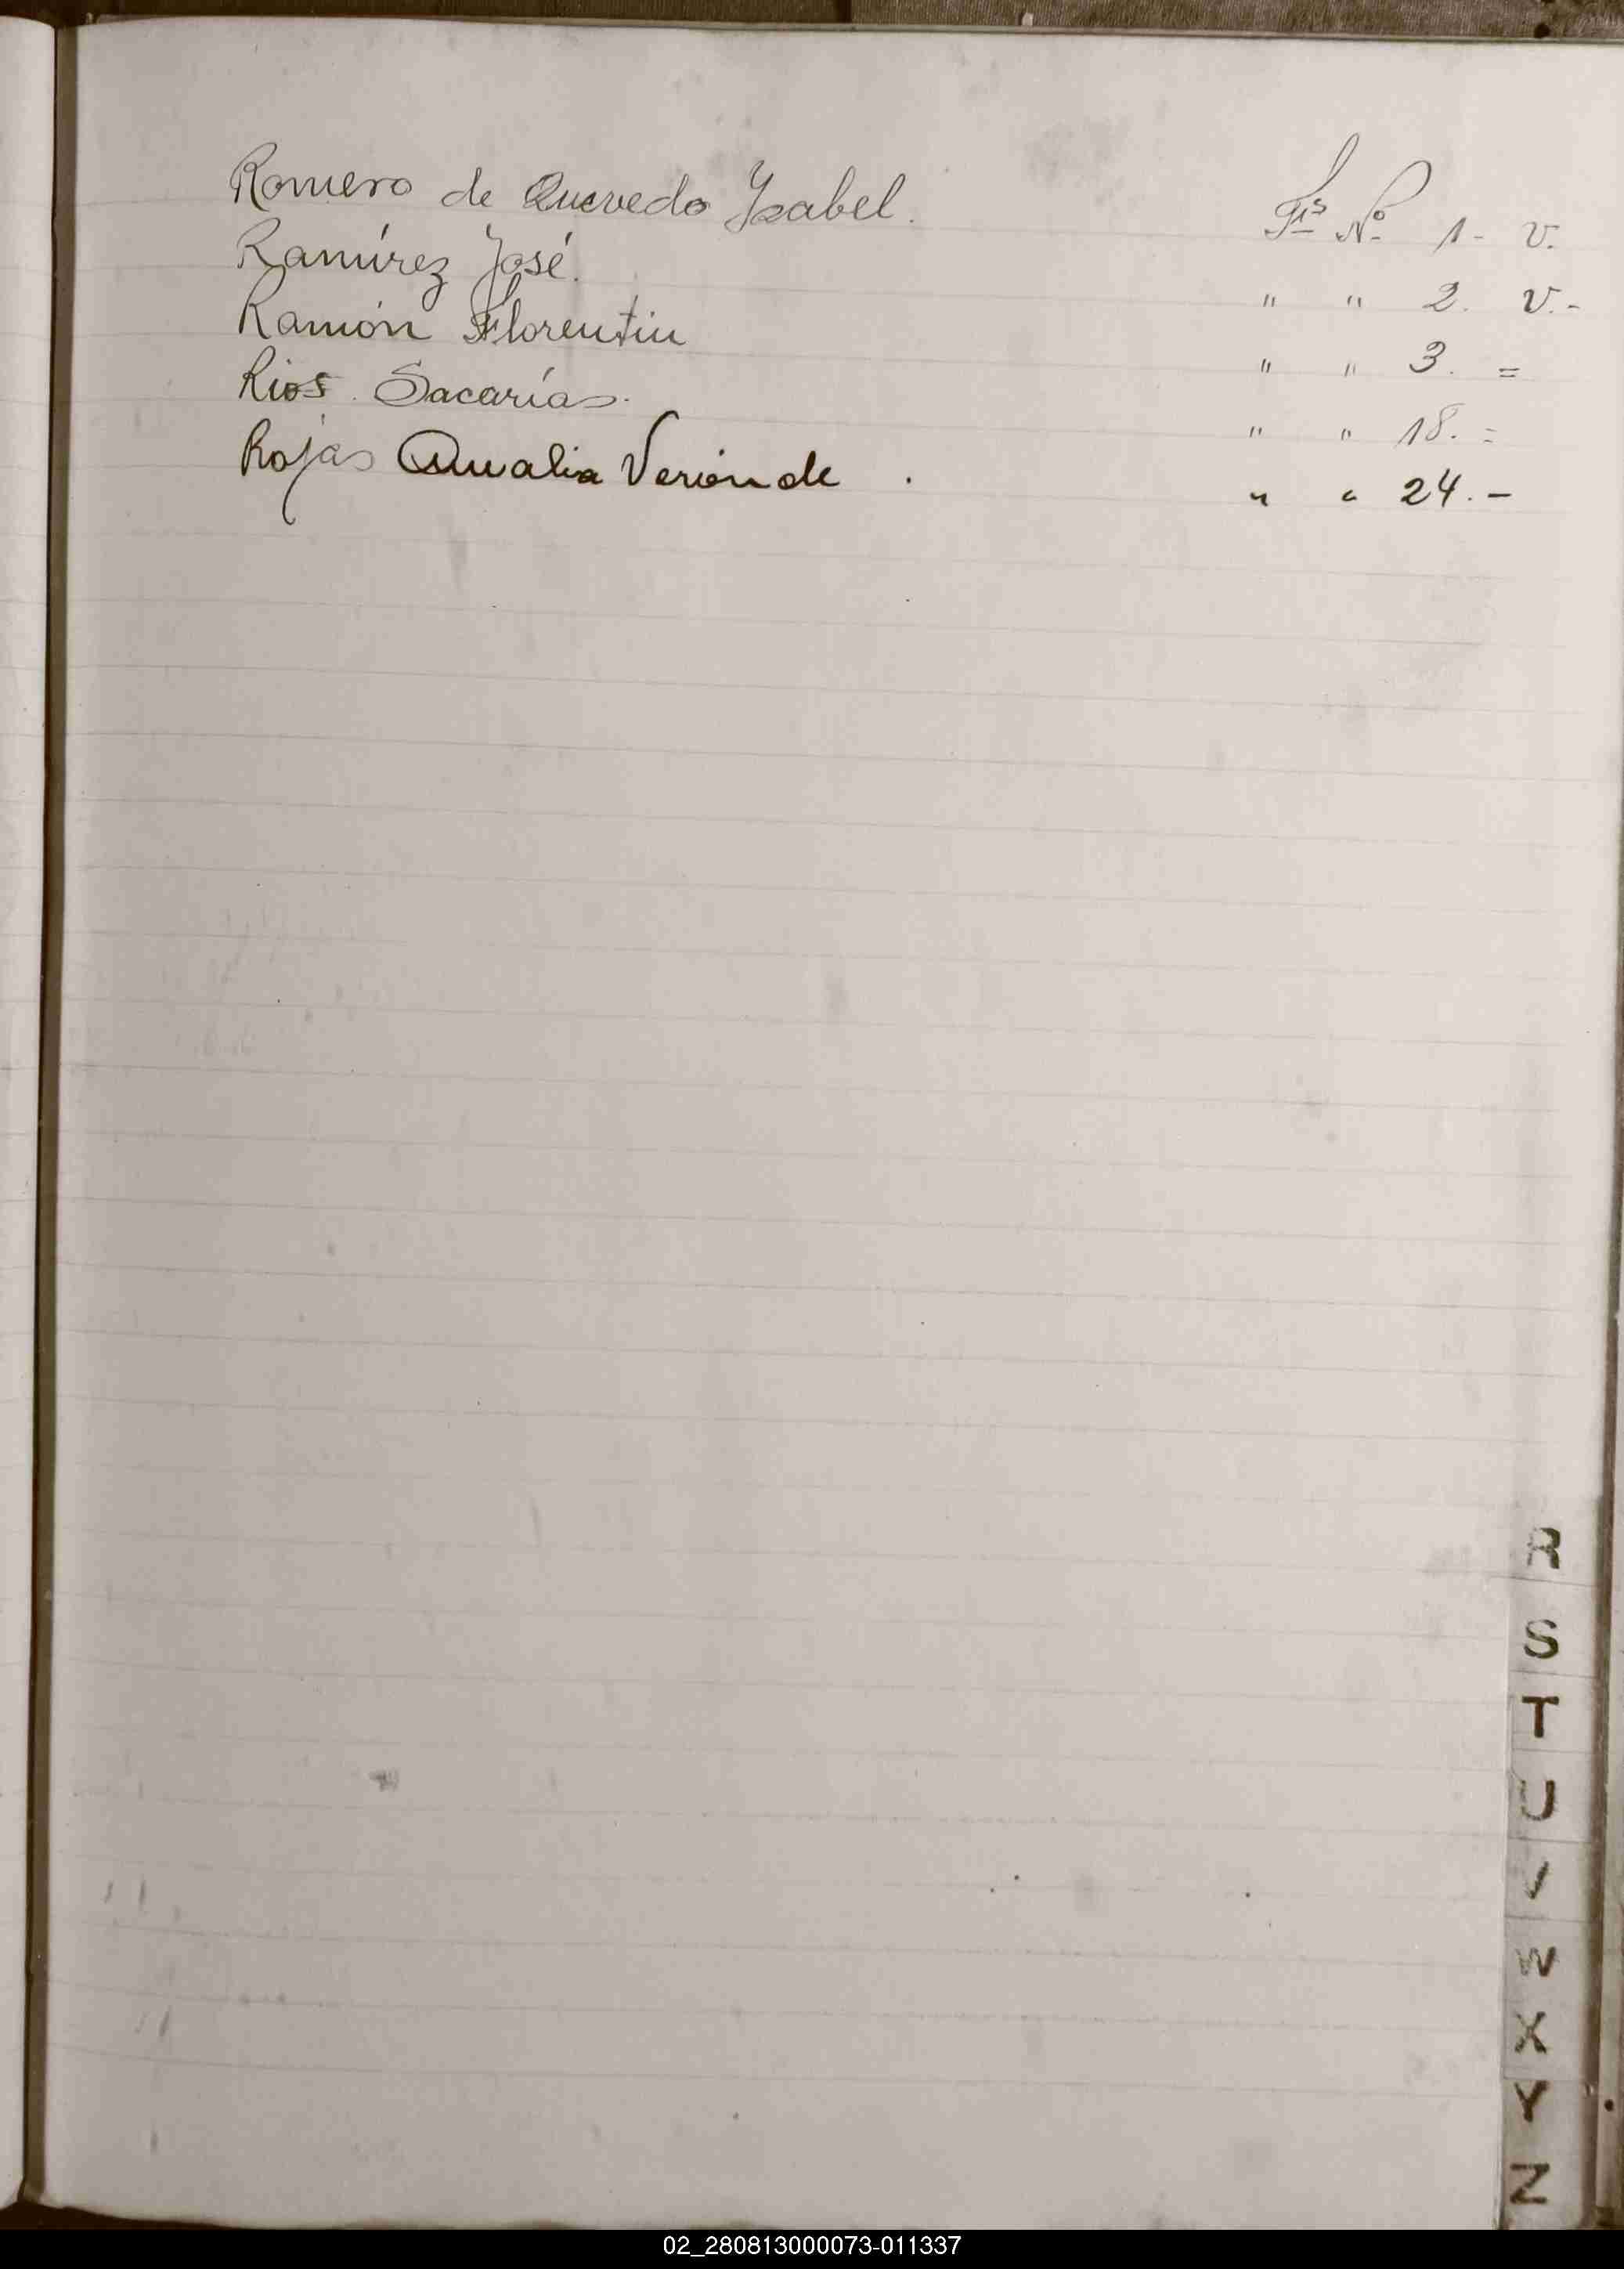 Romero de Quevedo Ysabel. Fls Nº 1- v.
Ramírez José. " " 2. v.-
Ramón Florentin " " 3. =
Rios. Sacarías. " " 18. =
Rojas Amalia Verión de . " " 24.-
R
S
T
U
V
W
X
Y
Z
02_280813000073-011337